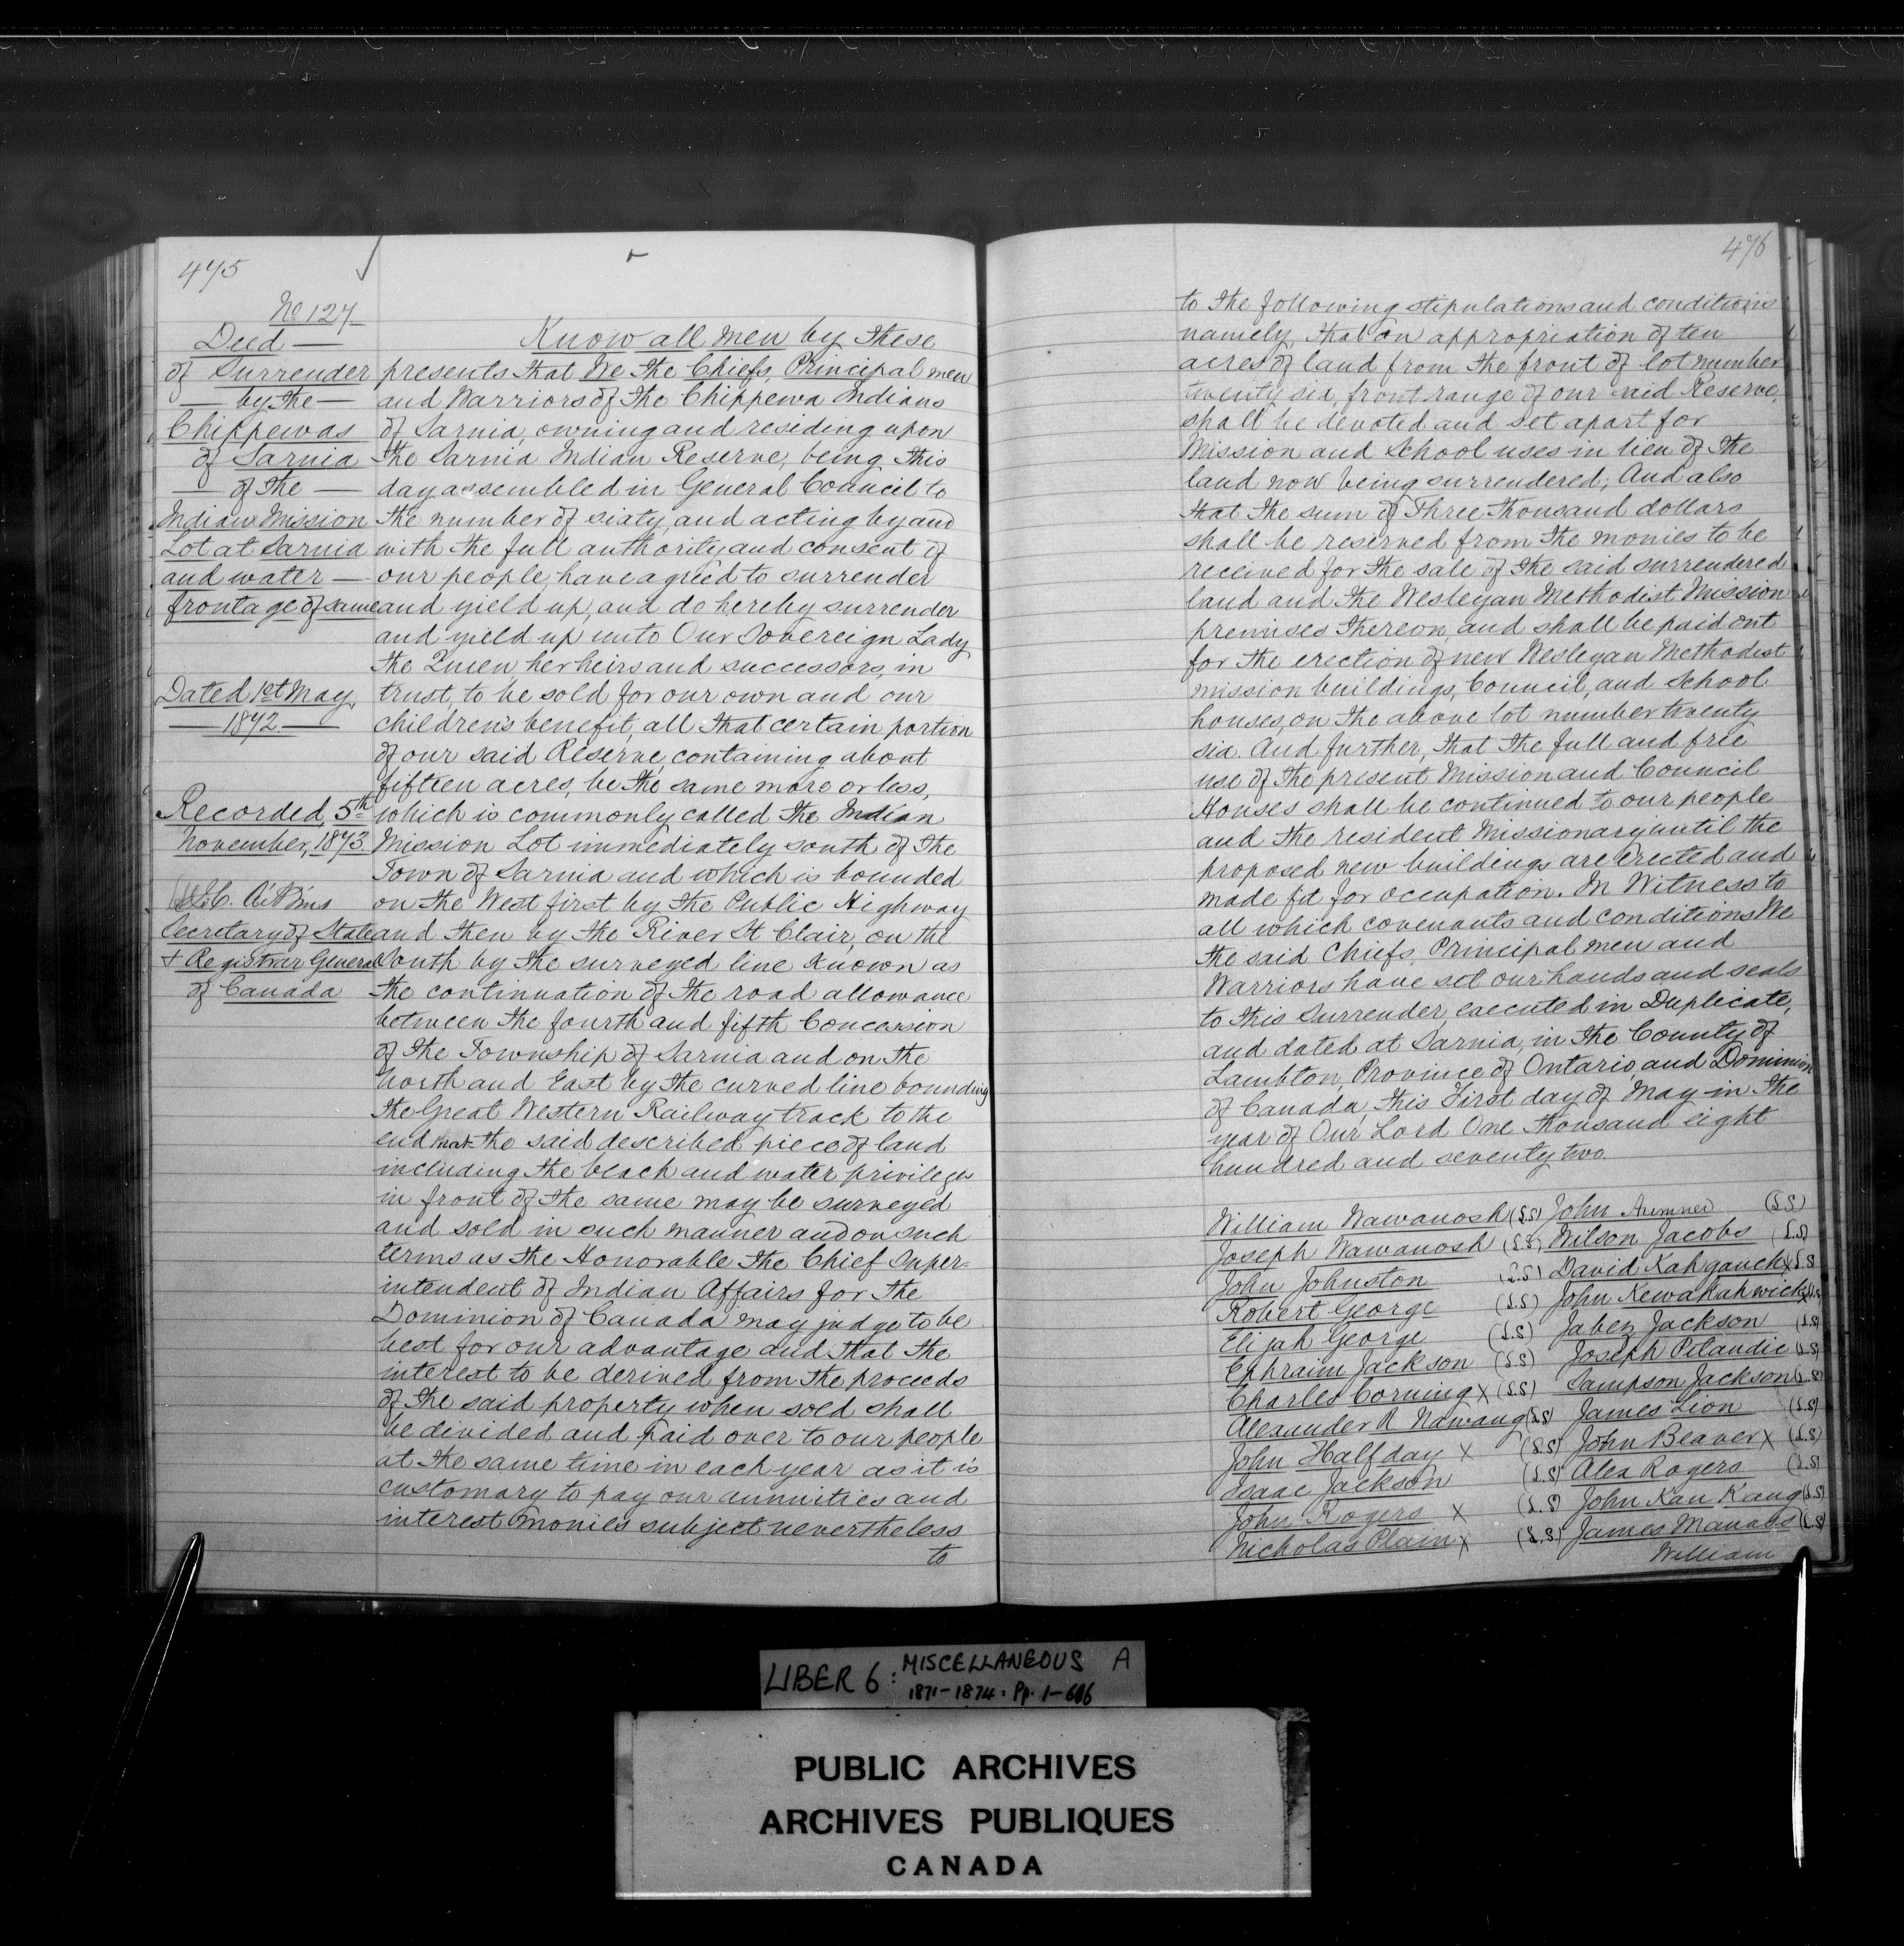 475
No 127
Deed —
of Surrender
— by the —
Chippewas
of Sarnia
— of the —
Indian Mission
Lot at Sarnia
and water —
frontage of same
Dated 1st May,
— 1872 —
Recorded, 5th
November, 1873
Secretary of State
+ Registrar General
of Canada
Know all men by these
presents that We the Chiefs, Principal men
and Warriors of the Chippewa Indians
of Sarnia, owning and residing upon
the Sarnia Indian Reserve, being this
day assembled in General Council to
the number of sixty, and acting by and
with the full authority and consent of
our people, have agreed to surrender
and yield up, and do hereby surrender
and yield up unto Our Sovereign Lady
the Queen, her heirs and successors, in
trust, to be sold for our own and our
children's benefit, all that certain portion
of our said Reserve, containing about
fifteen acres, be the same more or less,
which is commonly called the Indian
Mission Lot immediately south of the
Town of Sarnia and which is bounded
on the West first by the Public Highway
and then by the River St Clair, on the
South by the surveyed line known as
the continuation of the road allowance
between the fourth and fifth Concession
of the Township of Sarnia and on the
North and East by the curved line bounding
the Great Western Railway track to the
end that the said described piece of land
including the beach and water privileges
in front of the same may be surveyed
and sold in such manner and on such
terms as the Honorable the Chief Super-
intendent of Indian Affairs for the
Dominion of Canada may judge to be
best for our advantage and that the
interest to be derived from the proceeds
of the said property when sold shall
be divided and paid over to our people
at the same time in each year as it is
customary to pay our annuities and
interest monies subject nevertheless
to
476
to the following stipulations and conditions
namely, that an appropriation of ten
acres of land from the front of lot number
twenty six, front range of our said Reserve,
shall be devoted and set apart for
Mission and School uses in lieu of the
land now being surrendered; And also
that the sum of Three thousand dollars
shall be reserved from the monies to be
received for the sale of the said surrendered
land and the Wesleyan Methodist Mission
premises thereon, and shall be paid out
for the erection of new Wesleyan Methodist
mission buildings, Council, and School
houses, on the above lot number twenty
six. And further, that the full and free
use of the present Mission and Council
Houses shall be continued to our people
and the resident Missionary until the
proposed new buildings are erected and
made fit for occupation. In Witness to
all which covenants and conditions We
the said Chiefs, Principal men and
Warriors have set our hands and seals
to this Surrender, executed in Duplicate,
and dated at Sarnia, in the County of
Lambton, Province of Ontario, and Dominion
of Canada, this First day of May in the
year of Our Lord One thousand eight
hundred and seventy two.
William Wawanosh (L.S) John (L.S)
Joseph Wawanosh (L.S) Wilson Jacobs (L.S)
John Johnston (L.S) David Kahgauck X L.S
Robert George (L.S) John Kewakahwick X L.S
Elijah George (L.S) Jabez Jackson (L.S)
Ephraim Jackson (L.S) Joseph Pelandie (L.S)
Charles Corning X (L.S) Sampson Jackson (L.S)
Alexander R Nawaug (L.S) James Lion (L.S)
John Halfday X (L.S) John Beaver X (L.S)
Isaac Jackson (L.S) Alex Rogers (L.S)
John Rogers X (L.S) John Kau Kaug (L.S)
Nicholas Plain X (L.S) James Manabs (L.S)
William
LIBER 6: MISCELLANEOUS A
1871-1874. Pp. 1-606
PUBLIC ARCHIVES
ARCHIVES PUBLIQUES
CANADA